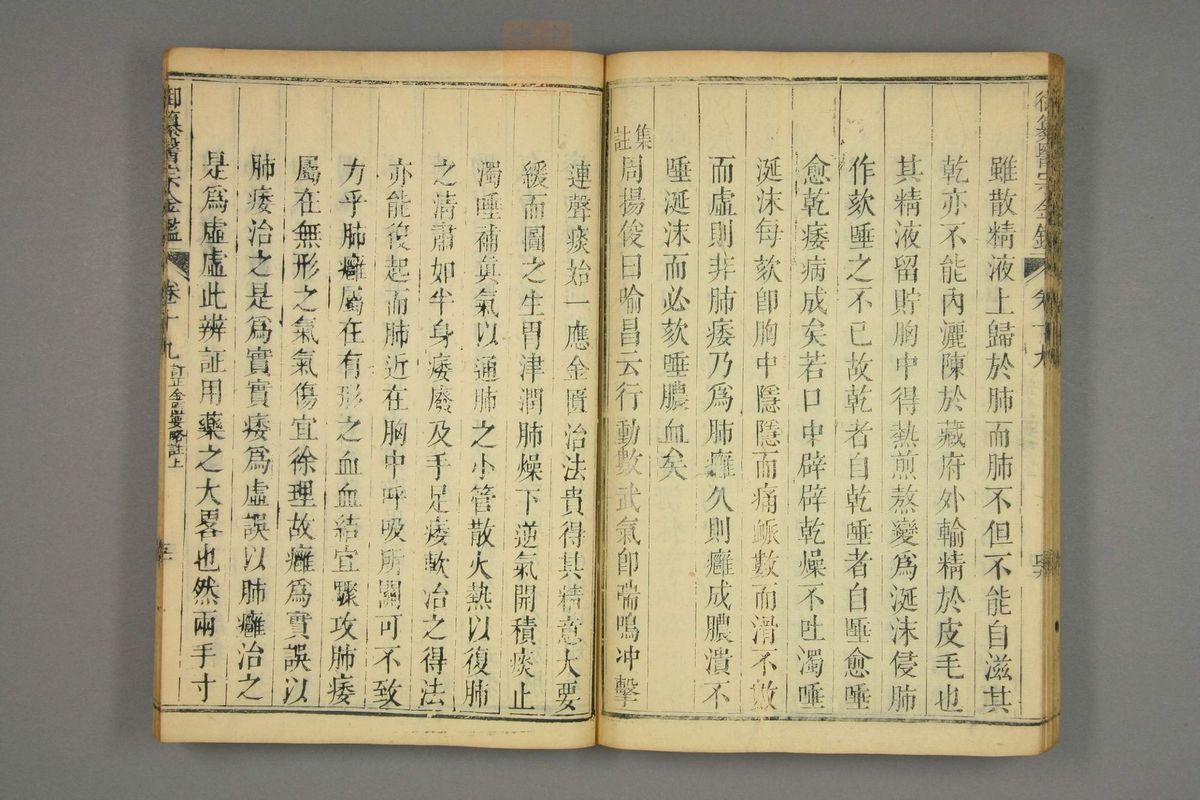 雖散精液上歸於肺而肺不但不能自滋其
乾亦不能內灑陳於藏府外輸精於皮毛也
其精液留貯胸中得熱煎熬變為涎沫侵肺
作欬唾之不已故乾者自乾唾者自唾愈唾
愈乾痿病成矣若口中辟辟乾燥不吐濁唾
涎沫每欬卽胸中隱隱而痛脈數而滑不數
而虛則非肺痿乃爲肺癰久則癰成膿潰不
唾涎沫而必欬唾膿血矣
集註周揚俊曰喻昌云行動數武氣卽喘鳴冲擊
連聲痰始一應金匱治法貴得其精意大要
緩而圖之生胃津潤肺燥下逆氣開積痰止
濁唾補眞氣以通肺之小管散火熱以復肺
之清肅如半身痿廢及手足痿軟冶之得法
亦能復起而肺近在胸中呼吸所關可不致
力乎肺癰屬在有形之血血結宜驟攻肺痿
屬在無形之氣氣傷宜徐理故癰爲實誤以
肺痿治之是爲實實痿爲虛誤以肺癰治之
是爲虛虛此辨証用藥之大畧也然兩手寸
御纂醫宗金鑑 卷十九 訂正金匱要略註上